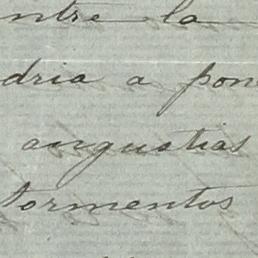 ntre la
dria a pon
angustias
tormentos